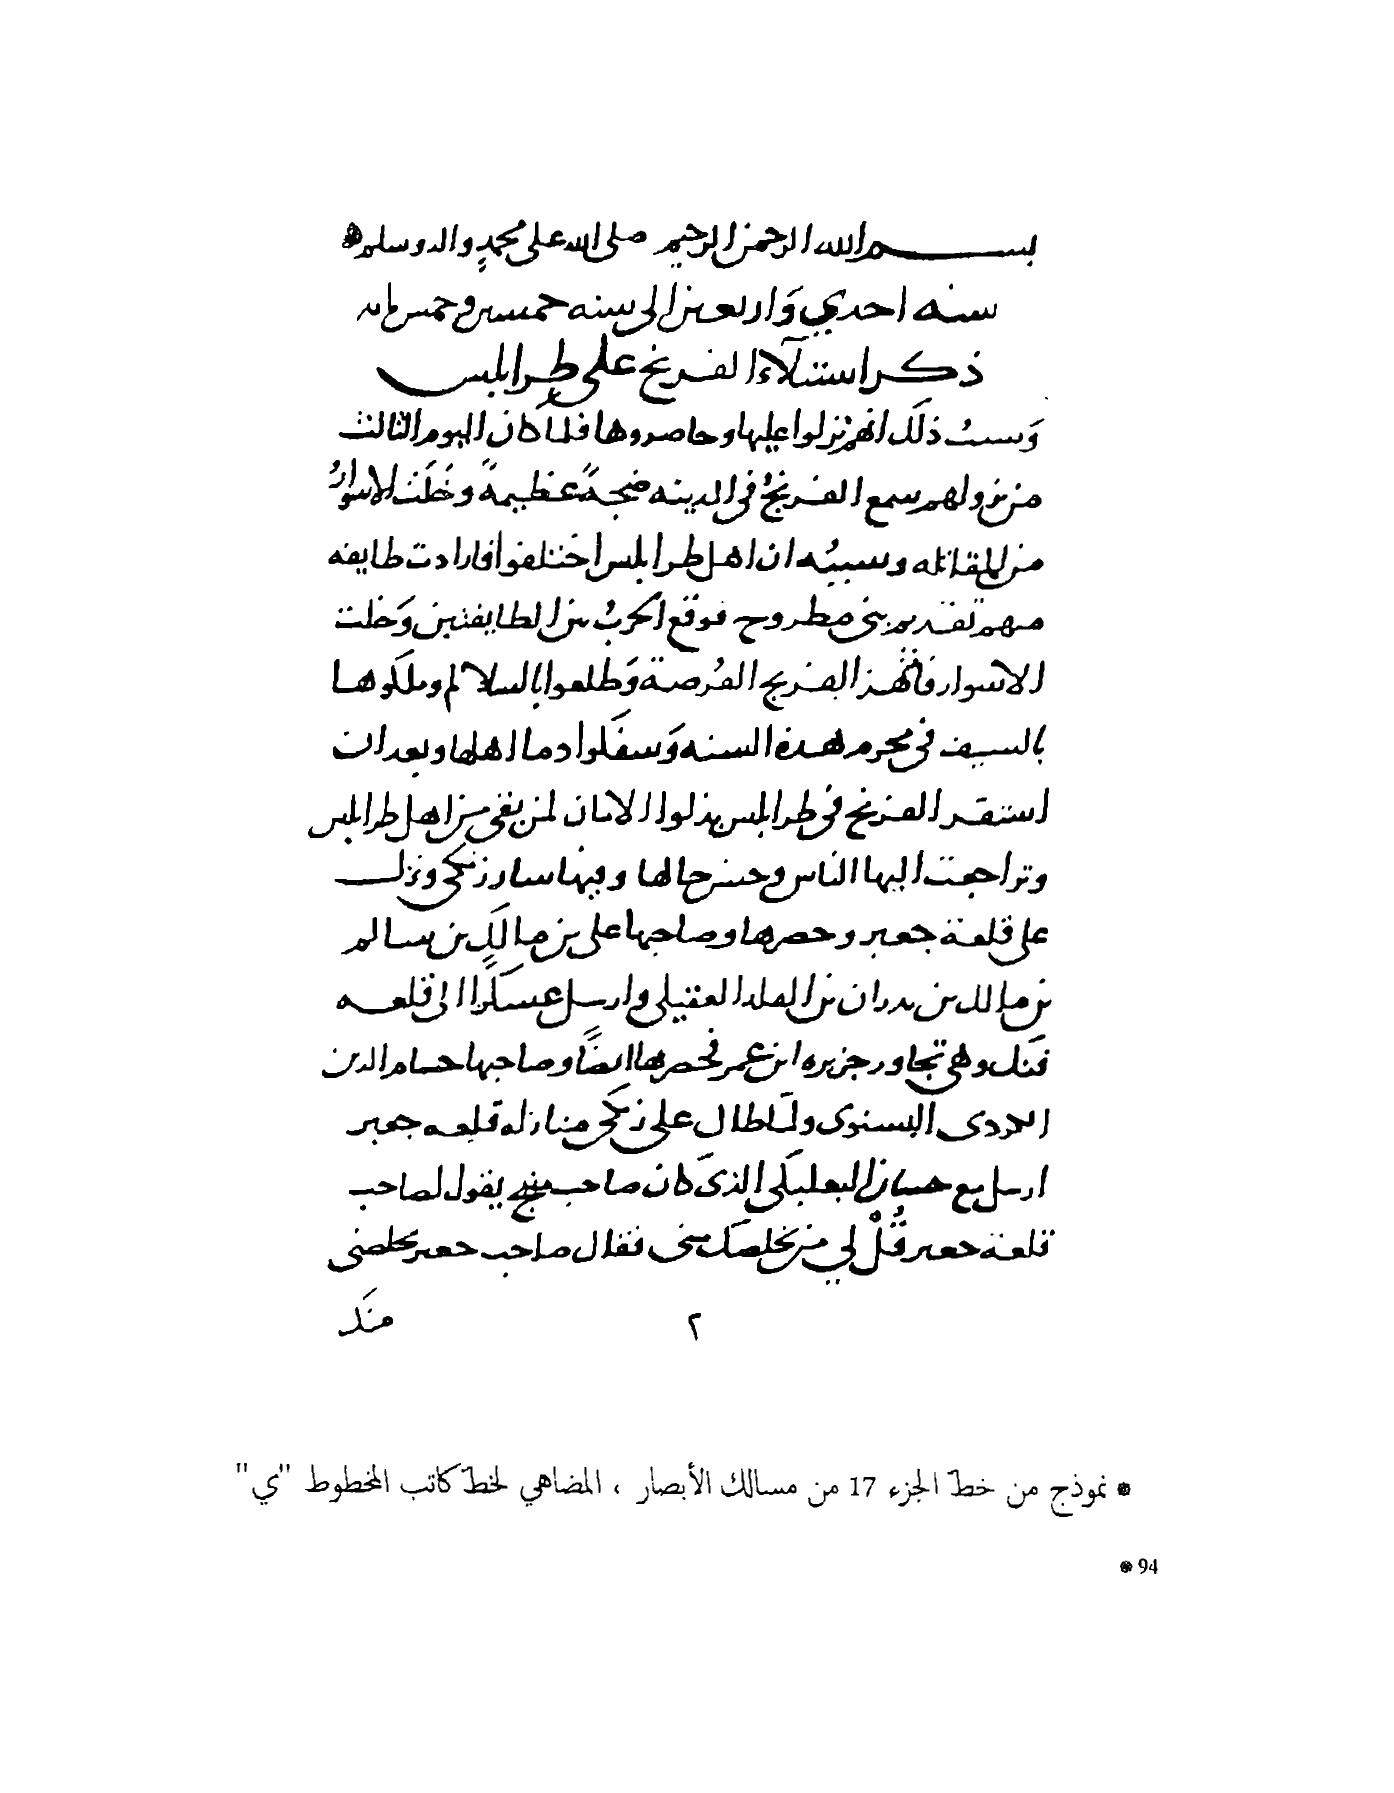 بسم الله الرحمن الرحيم صلى الله على محمد واله وسلم
سنه احدي وَاربعين الى سنه خمسين وخمس مايه
ذكر استيلآء الفرنج على طرابلس
وَسببُ ذلك انهم نزلوا عليها وحاصروها فلما كان اليوم الثالث
من نزولهم سمع الفرنجُ في المدينه ضجةً عظيمةً وخَلَت الاسوارُ
من المقاتله وسببُه ان اهل طرابلس اختلفوا فارادت طايفه
منهم تقديم بني مطروح فوقع الحربُ بين الطايفتين وَخلت
الاسوار فانتهز الفرنج الفُرصة وَطلعوا بالسلالم وملكوها
بالسيف في محرم هذه السنه وَسفكوا دما اهلها وبعد ان
استقر الفرنج في طرابلس بذلوا الامان لمن بقي من اهل طرابلس
وتراجعت اليها الناس وحسن حالها وفيها سار زنكي ونزل
على قلعة جعبر وحصرها وصاحبها على بن مالك بن سالم
بن مالك بن بدران بن المقلد العقيلى وارسل عسكرًا الى قلعه
فنك وهي تجاور جزيره ابن عمر فحصرها ايضًا وصاحبها حسام الدين
الكردى البشنوى ولما طال على زنكي منازله قلعه جعبر
ارسل مع حسان البعلبكي الذى كان صاحب منبج يقول لصاحب
قلعة جعبر قُلْ لي من يخلصك مني فقال صاحب جعبر يخلصني
٢ منك
* نموذج من خطّ الجزء 17 من مسالك الأبصار ، المضاهي لخطّ كاتب المخطوط "ي"
* 94